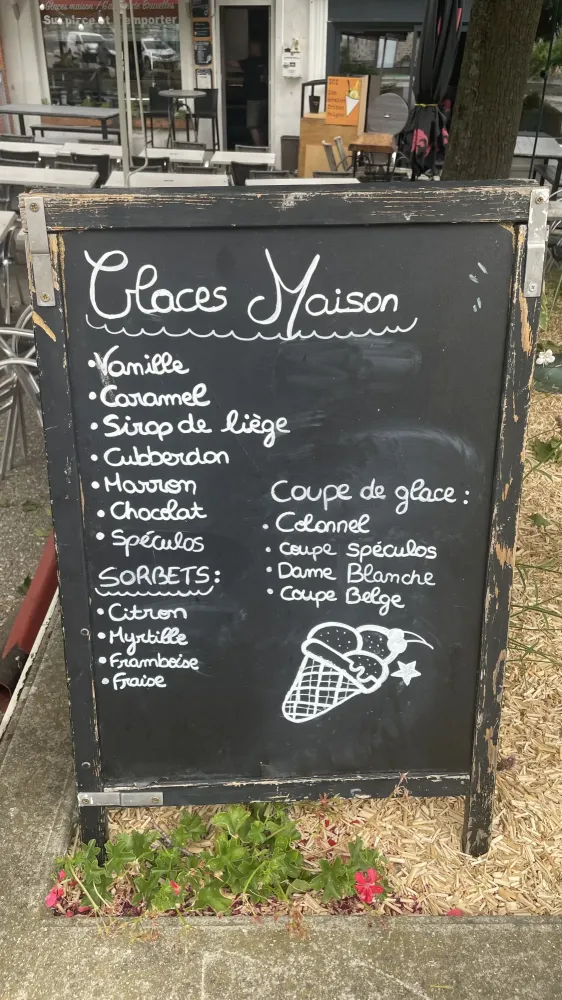 Glaces maison / Gaufres de Bruxelles
Sur place et emporter
Glaces Maison
• Vanille
• Caramel
• Sirop de liège
• Cubberdon
• Marron
• Chocolat
• Spéculos
SORBETS:
• Citron
• Myrtille
• Framboise
• Fraise
Coupe de glace :
• Colonnel
• coupe spéculos
• Dame Blanche
• Coupe Belge